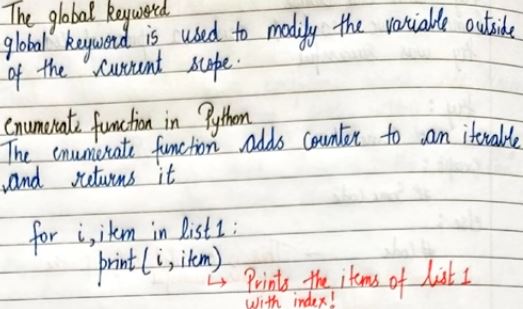 The global keyword
global keyword is used to modify the variable outside
of the current scope.
Enumerate function in Python
The enumerate function adds counter to an iterable
and returns it
for i, item in list1:
print(i, item)
↳ Prints the items of list 1
with index!